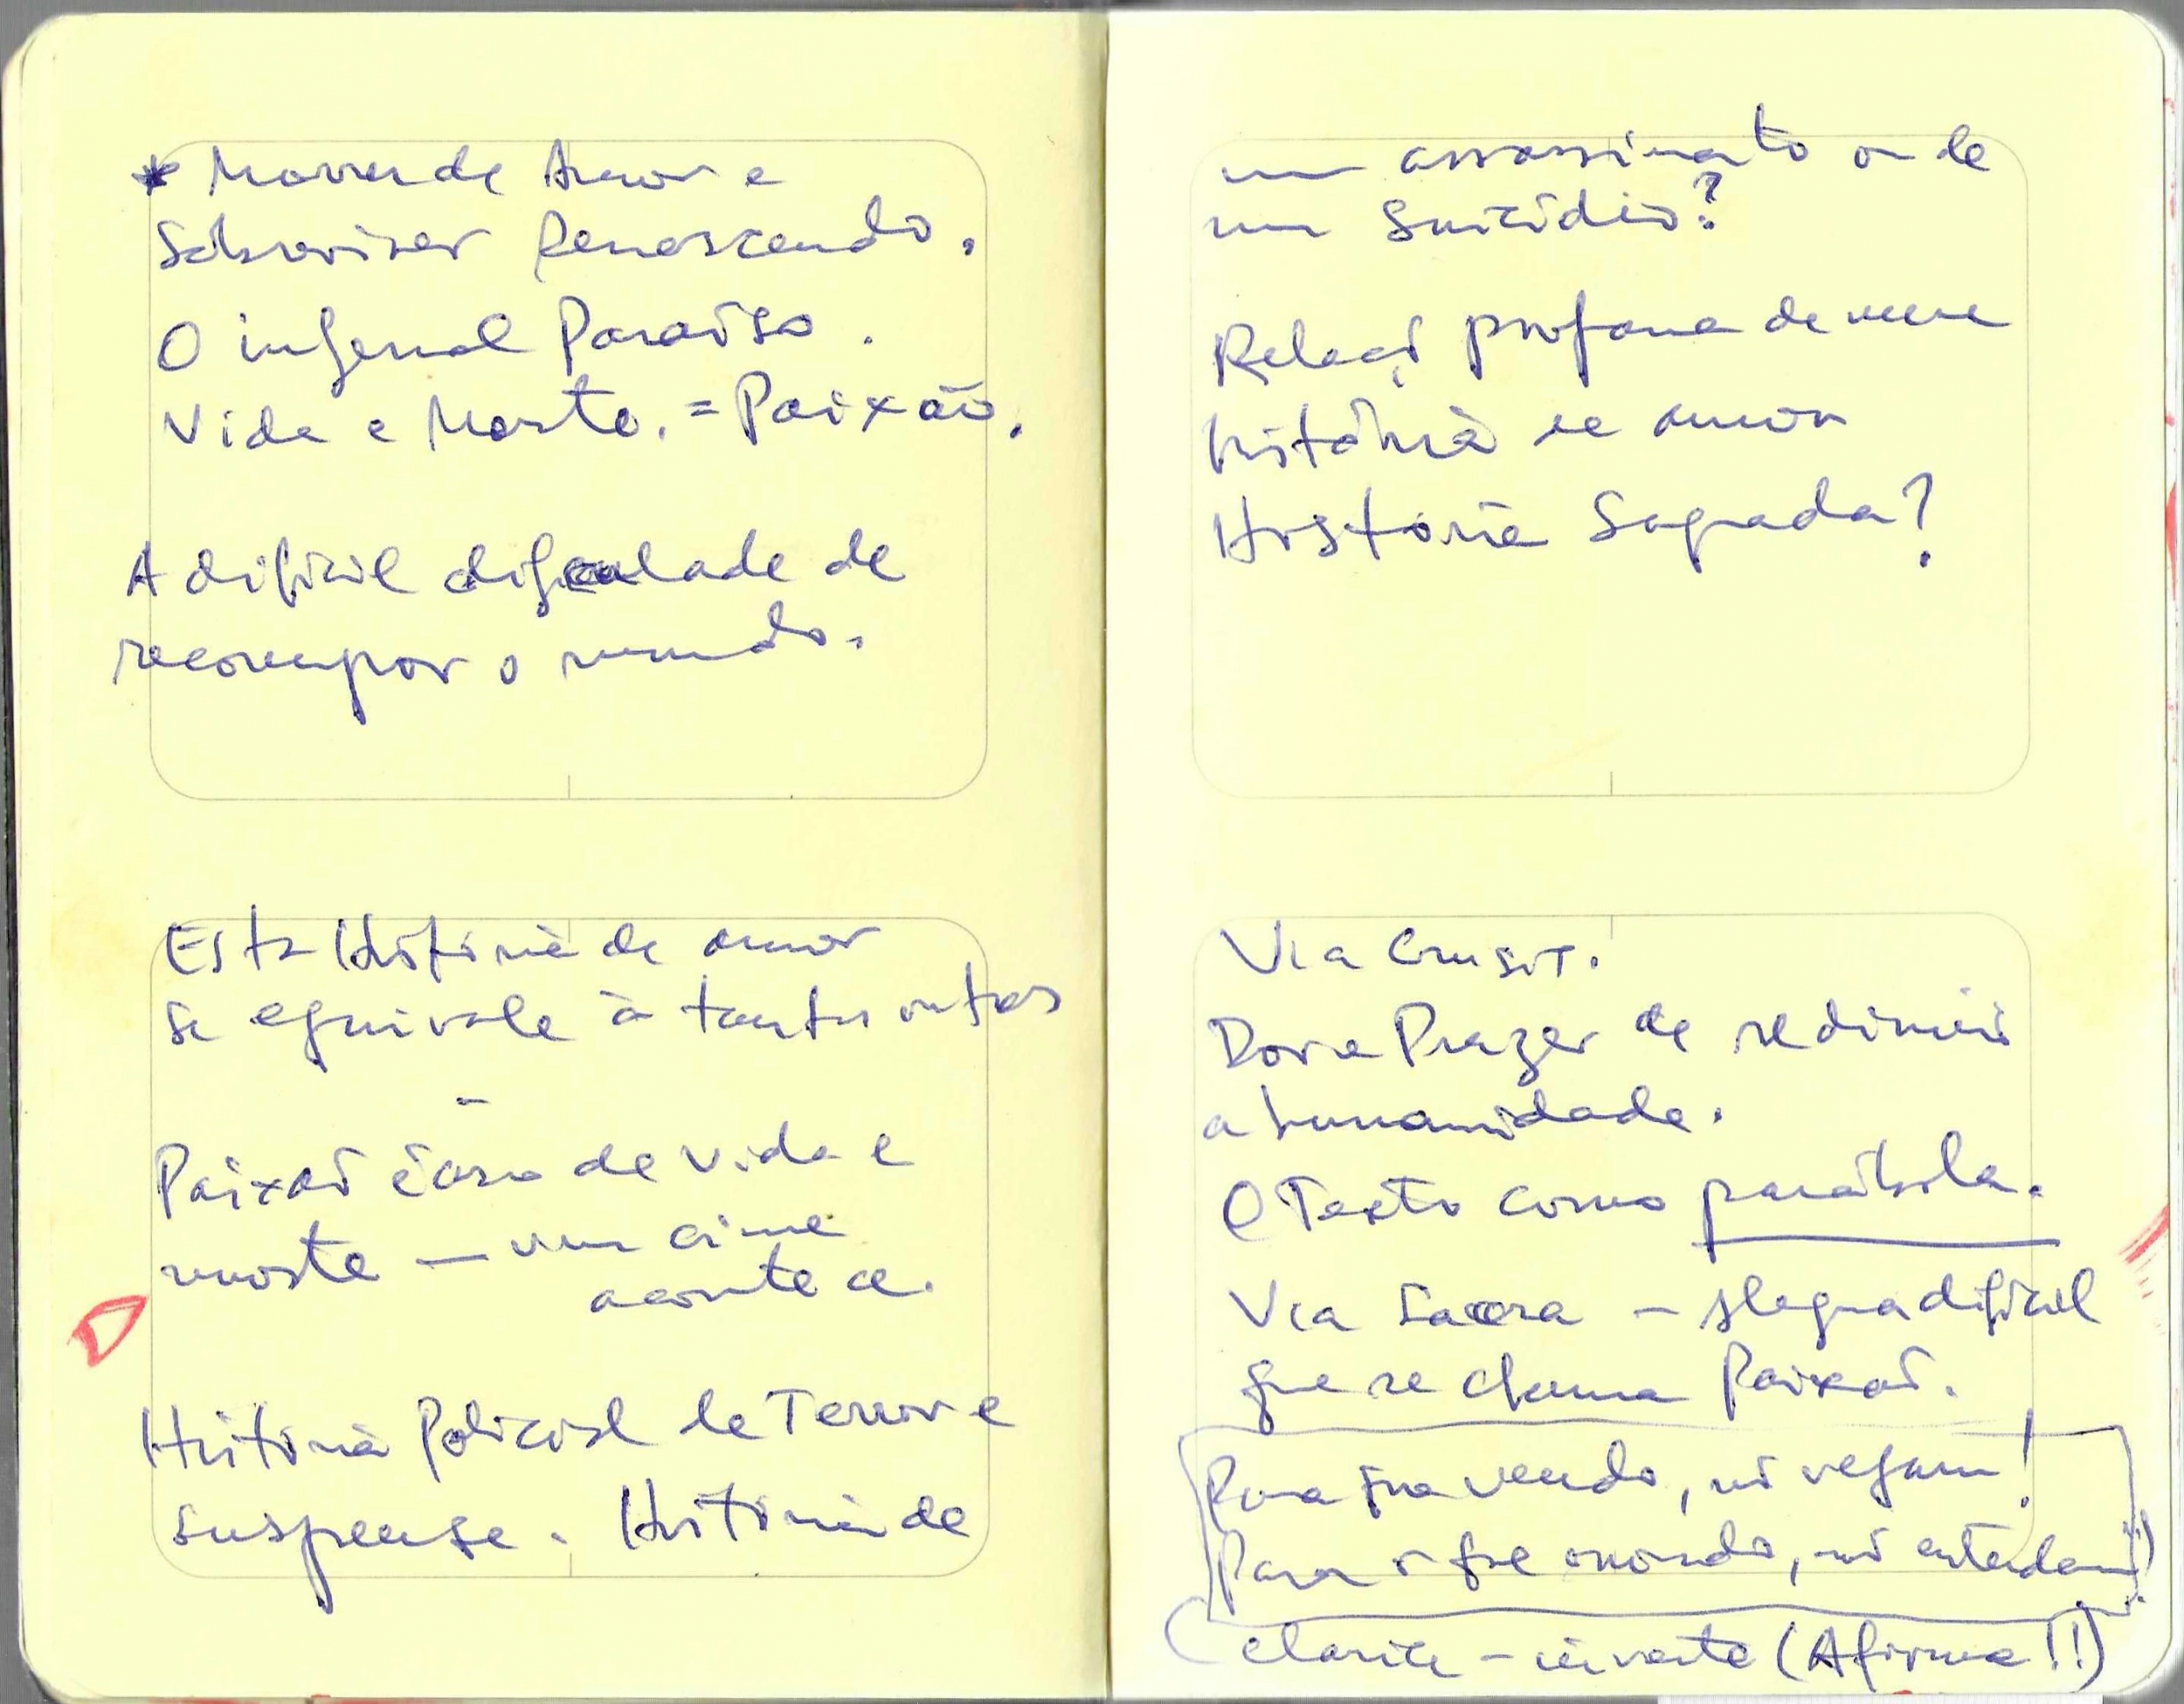 * Morrer de Amor e
Sobreviver Renascendo.
O infernal Paraíso.
Vida e Morte. = Paixão.
A difícil dificuldade de
recompor o mundo.
Esta História de amor
se equivale à tantas outras
-
Paixão é caso de vida e
morte — um crime
acontece.
História Policial de Terror e
suspense. História de
um assassinato ou de
um suicídio?
Relação profana de uma
história de amor
História Sagrada?
Via Crucis.
Dor e Prazer de redimir
a humanidade.
O Texto como parábola.
Via Sacra – difícil
que se chama Paixão.
Para que vendo, não vejam!
Para que ouvindo, não entendam!!
(Clarice – inverte (Afirma!!)